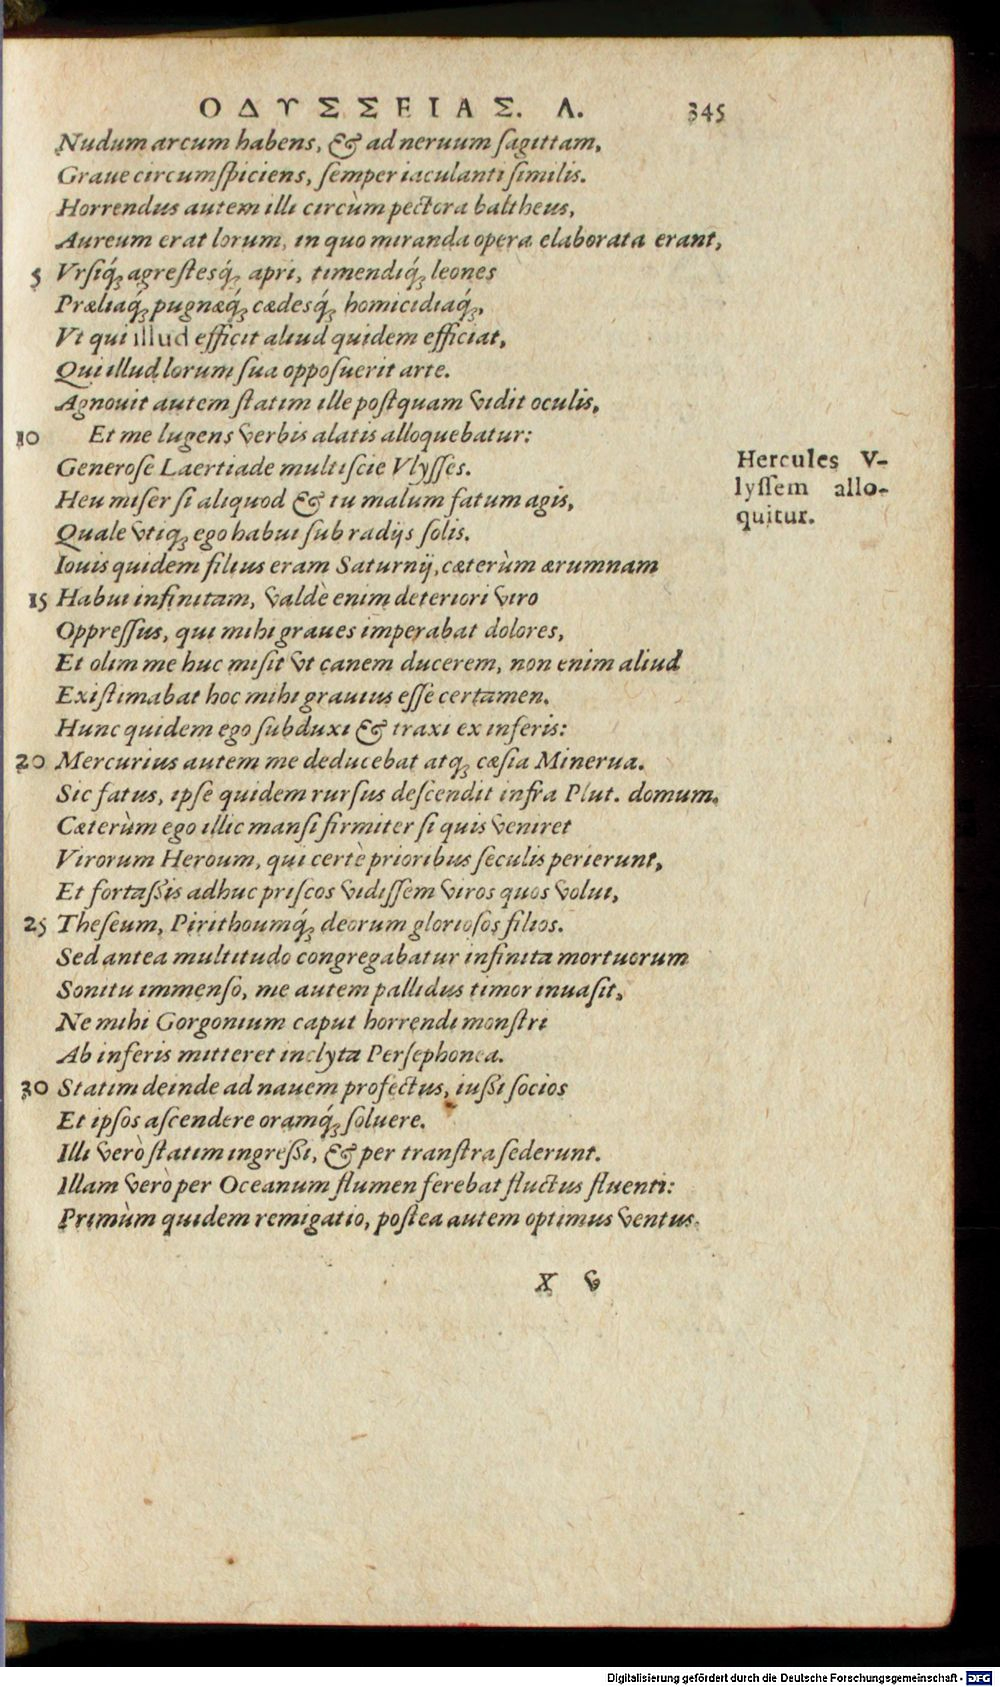 ΟΔΥΣΣΕΙΑΣ. Λ. 345
Nudum arcum habens, & ad neruum sagittam,
Graue circumspiciens, semper iaculanti similis.
Horrendus autem illi circùm pectora baltheus,
Aureum erat lorum, in quo miranda opera elaborata erant,
5 Vrsiq́; agrestesq́; apri, timendiq́; leones
Præliaq́; pugnæq́; cædesq́; homicidiaq́;,
Vt qui illud efficit aliud quidem efficiat,
Qui illud lorum sua opposuerit arte.
Agnouit autem statim ille postquam vidit oculis,
10 Et me lugens verbis alatis alloquebatur:
Generose Laertiade multiscie Vlysses.
Hercules V-
lyssem allo-
quitur.
Heu miser si aliquod & tu malum fatum agis,
Quale vtiq; ego habui sub radijs solis.
Iouis quidem filius eram Saturnij, cæterùm ærumnam
15 Habui infinitam, valdè enim deteriori viro
Oppressus, qui mihi graues imperabat dolores,
Et olim me huc misit vt canem ducerem, non enim aliud
Existimabat hoc mihi grauius esse certamen.
Hunc quidem ego subduxi & traxi ex inferis:
20 Mercurius autem me deducebat atq; cæsia Minerua.
Sic fatus, ipse quidem rursus descendit infra Plut. domum.
Cæterùm ego illic mansi firmiter si quis veniret
Virorum Heroum, qui certè prioribus seculis perierunt,
Et fortassis adhuc priscos vidissem viros quos volui,
25 Theseum, Pirithoumq́; deorum gloriosos filios.
Sed antea multitudo congregabatur infinita mortuorum
Sonitu immenso, me autem pallidus timor inuasit,
Ne mihi Gorgonium caput horrendi monstri
Ab inferis mitteret inclyta Persephonea.
30 Statim deinde ad nauem profectus, iussi socios
Et ipsos ascendere oramq́; soluere.
Illi verò statim ingressi, & per transtra sederunt.
Illam verò per Oceanum flumen ferebat fluctus fluenti:
Primùm quidem remigatio, postea autem optimus ventus.
X v
Digitalisierung gefördert durch die Deutsche Forschungsgemeinschaft - DFG